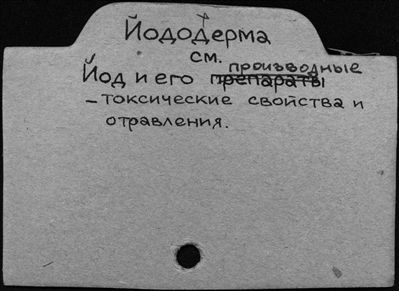 Йододерма
см.
производные
Йод и его препараты
- токсические свойства и
отравления.